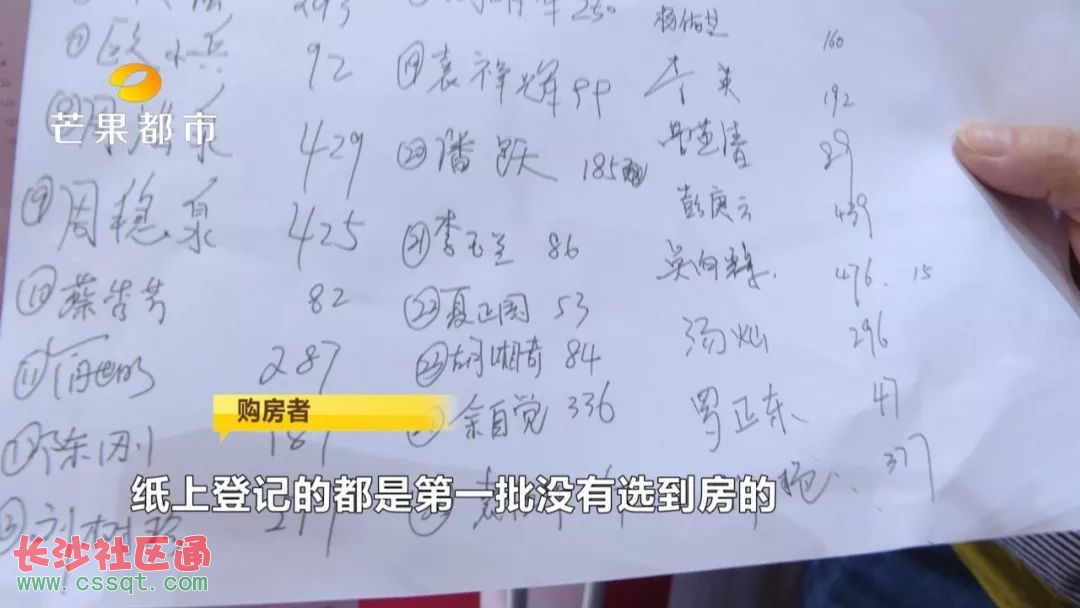 293
250
杨佑芝 160
⑦ 欧小兵 92
⑲ 袁祥辉 99
英 192
芒果都市
429
⑳ 潘跃 185
清 89
⑨ 周稳泉 425
㉑ 李玉兰 86
彭庚云 439
⑩ 蔡雪芳 82
㉒ 夏正国 53
吴向辉 476. 15
⑪ 287
㉓ 胡湘奇 84
汤灿 296
购房者
陈刚 187
余自觉 336
罗正东 47
纸上登记的都是第一批没有选到房的
377
长沙社区通
www.cssqt.com